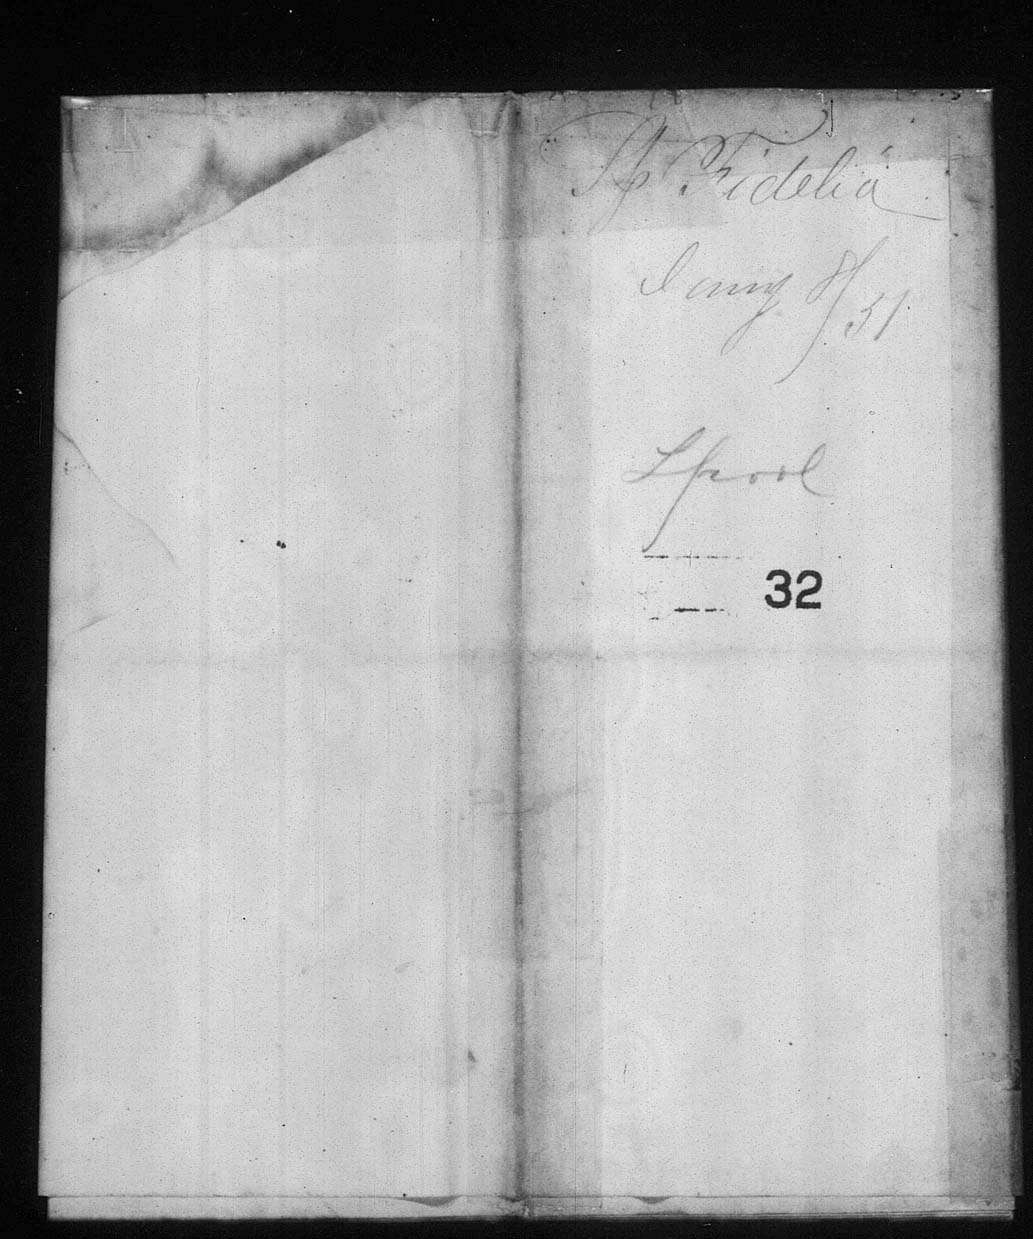 Sp Fidelia
Jany 8/51
Lpool
32